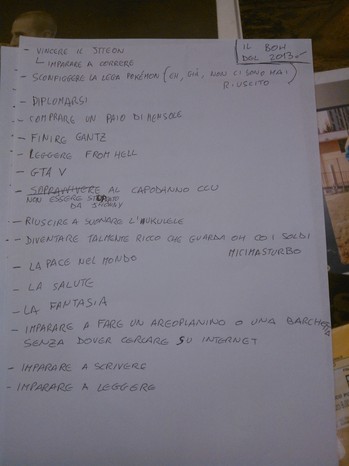 IL BOH
DEL 2013
- VINCERE IL
IMPARARE A CORRERE
- SCONFIGGERE LA LEGA POKÉMON (EH, GIÀ, NON CI SONO MAI
RIUSCITO)
- DIPLOMARSI
- COMPRARE UN PAIO DI MENSOLE
- FINIRE GANTZ
- LEGGERE FROM HELL
- GTA V
- SOPRAVVIVERE AL CAPODANNO CCU
NON ESSERE
DA
- RIUSCIRE A SUONARE L'UKULELE
- DIVENTARE TALMENTE RICCO CHE GUARDA OH COI SOLDI
MICIMASTURBO
- LA PACE NEL MONDO
- LA SALUTE
- LA FANTASIA
- IMPARARE A FARE UN AREOPLANINO O UNA BARCHETTA
SENZA DOVER CERCARE SU INTERNET
- IMPARARE A SCRIVERE
- IMPARARE A LEGGERE